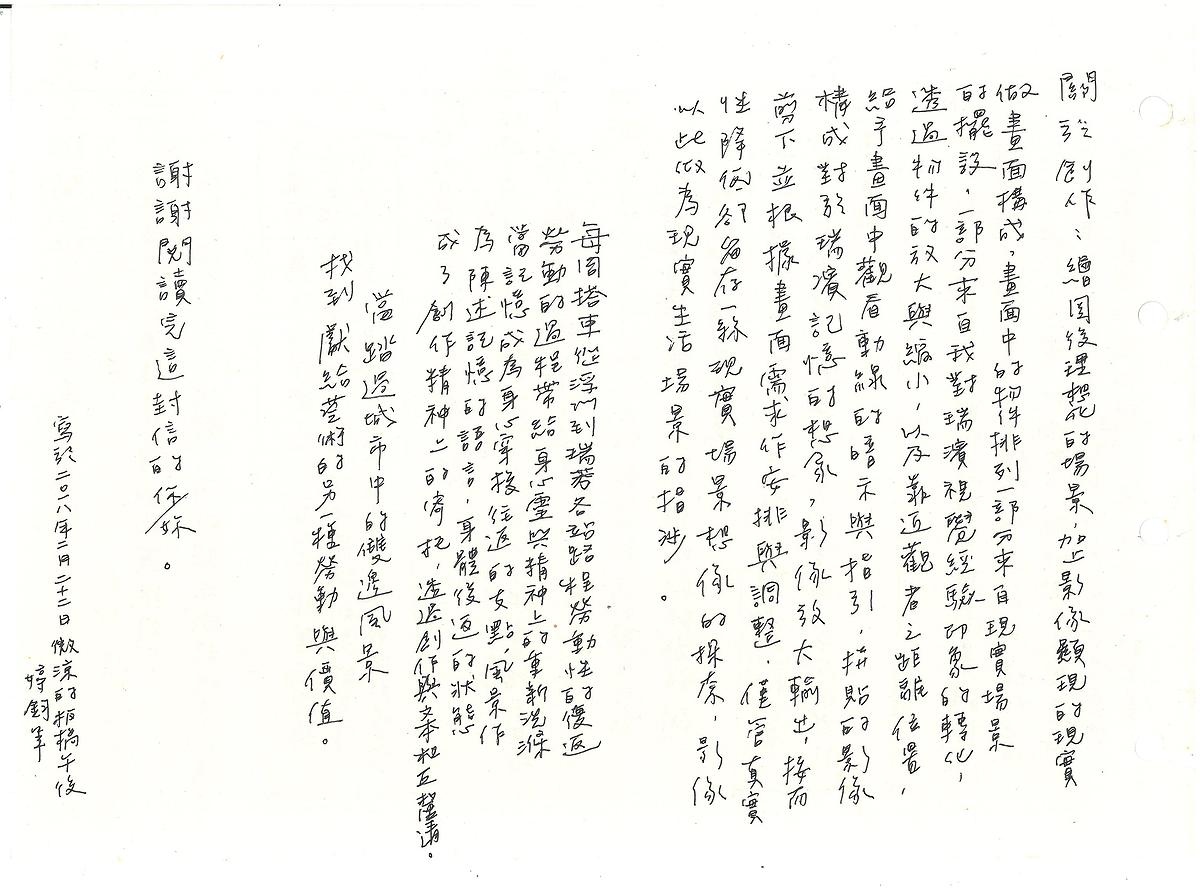 關於創作：繪図後理想的場景，加上影像顯現的現實
做畫面構成，畫面中的物件排列一部分來自現實場景
的擺設，一部分來自我對瑞濱視覺經驗印象的轉化，
透過物件的放大與縮小，以及靠近觀者之距離位置，
給予畫面中觀看動線的暗示與指引，拼貼的影像
構成對於瑞濱記憶的想象，影像放大輸出，接而
剪下並根據畫面需求作安排與調整，僅管真實
性降低卻留存一絲現實場景想像的探索，影像
以此做為現實生活場景的指涉。
每周搭車從浮洲到瑞芳各站路程勞動性的復返
勞動的過程帶給身心靈與精神上的重新洗滌
當記憶成為身心穿梭往返的支點，風景作
為陳述記憶的語言，身體復返的狀態
成了創作精神上的寄托，透過創作與文本相互釐清。
當踏過城市中的雙邊風景
找到獻給藝術的另一種勞動與價值。
謝謝閱讀完這封信的你/妳。
寫於二〇一八年二月二十二日 微涼的板橋午後
婷鈞筆